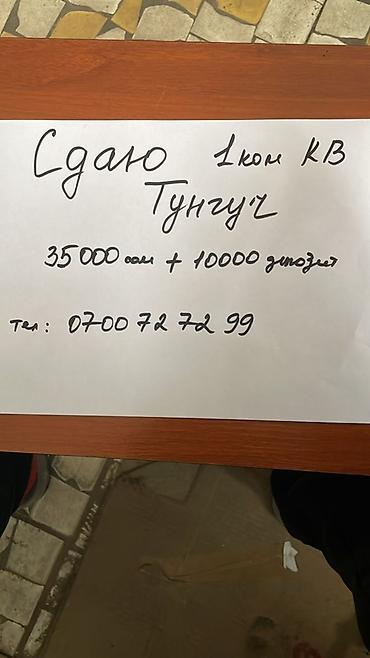 Сдаю 1 ком КВ
Тунгуч
35000 сом + 10000 депозит
тел: 0700 72 72 99